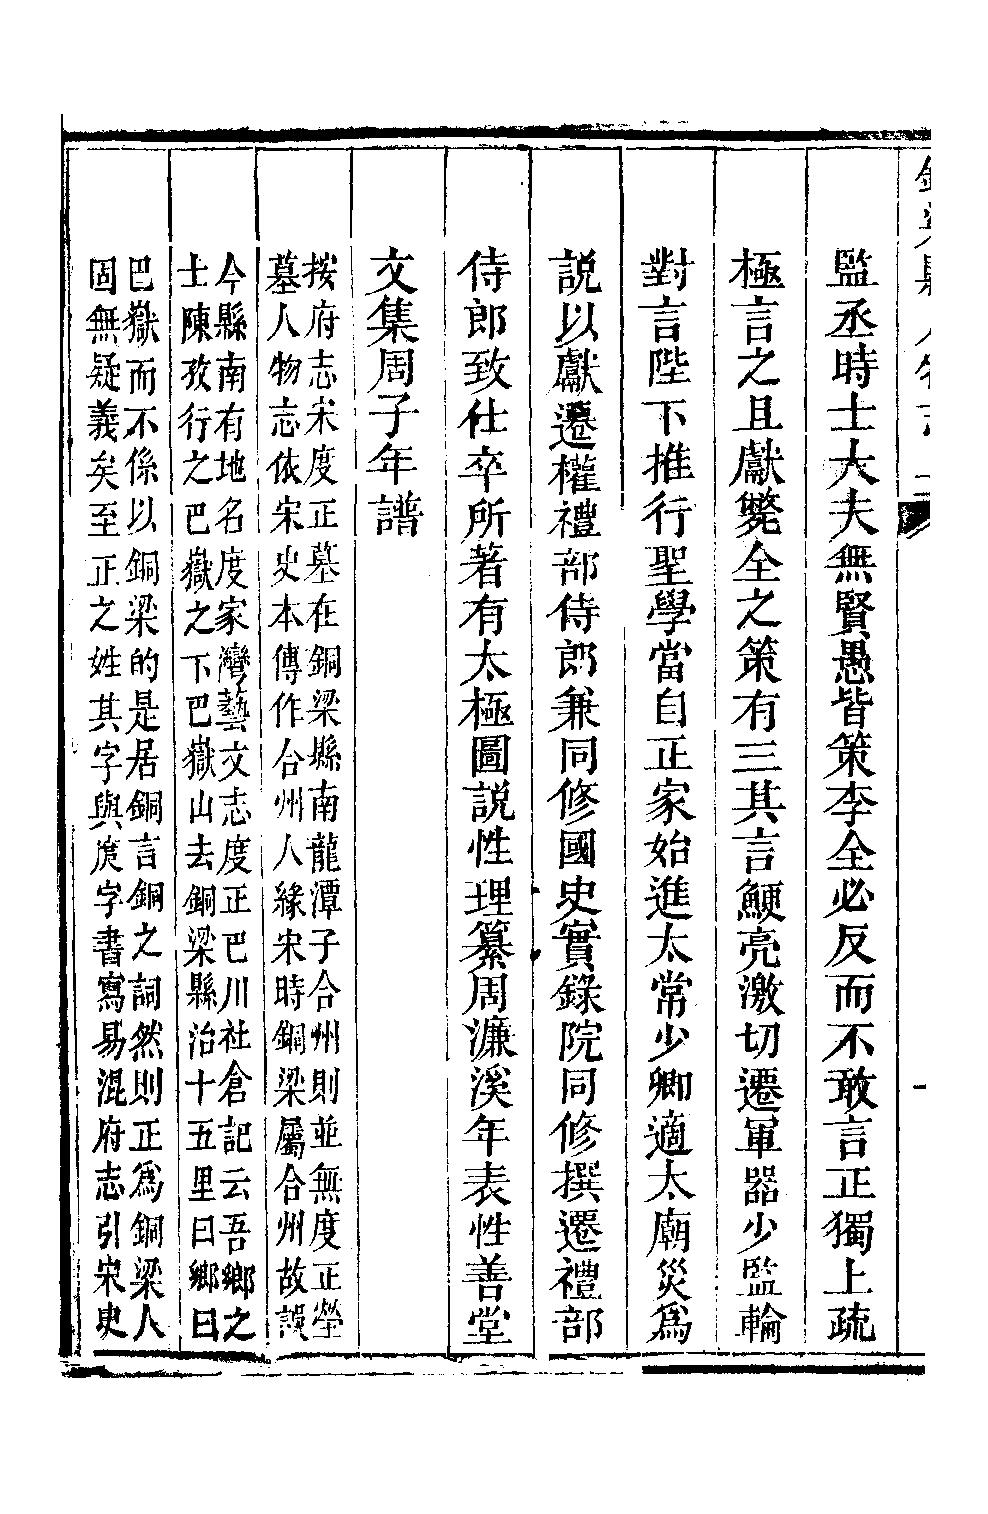 監丞時士大夫無賢愚皆策李全必反而不敢言正獨上疏
極言之且獻斃全之策有三其言鯁亮激切遷軍器少監輪
對言陛下推行聖學當自正家始進太常少卿適太廟災爲
說以獻遷權禮部侍郎兼同修國史實錄院同修撰遷禮部
侍郎致仕卒所著有太極圖説性理纂周濂溪年表性善堂
文集周子年譜
按府志宋度正墓在銅梁縣南龍潭子合州則並無度正塋
墓人物志依宋史本傳作合州人緣宋時銅梁屬合州故誤
今縣南有地名度家灣藝文志度正巴川社倉記云吾鄉之
士陳孜行之巴嶽之下巴嶽山去銅梁縣治十五里曰鄉曰
巴嶽而不係以銅梁的是居銅言銅之詞然則正爲銅梁人
固無疑義矣至正之姓其字與庹字書寫易混府志引宋史